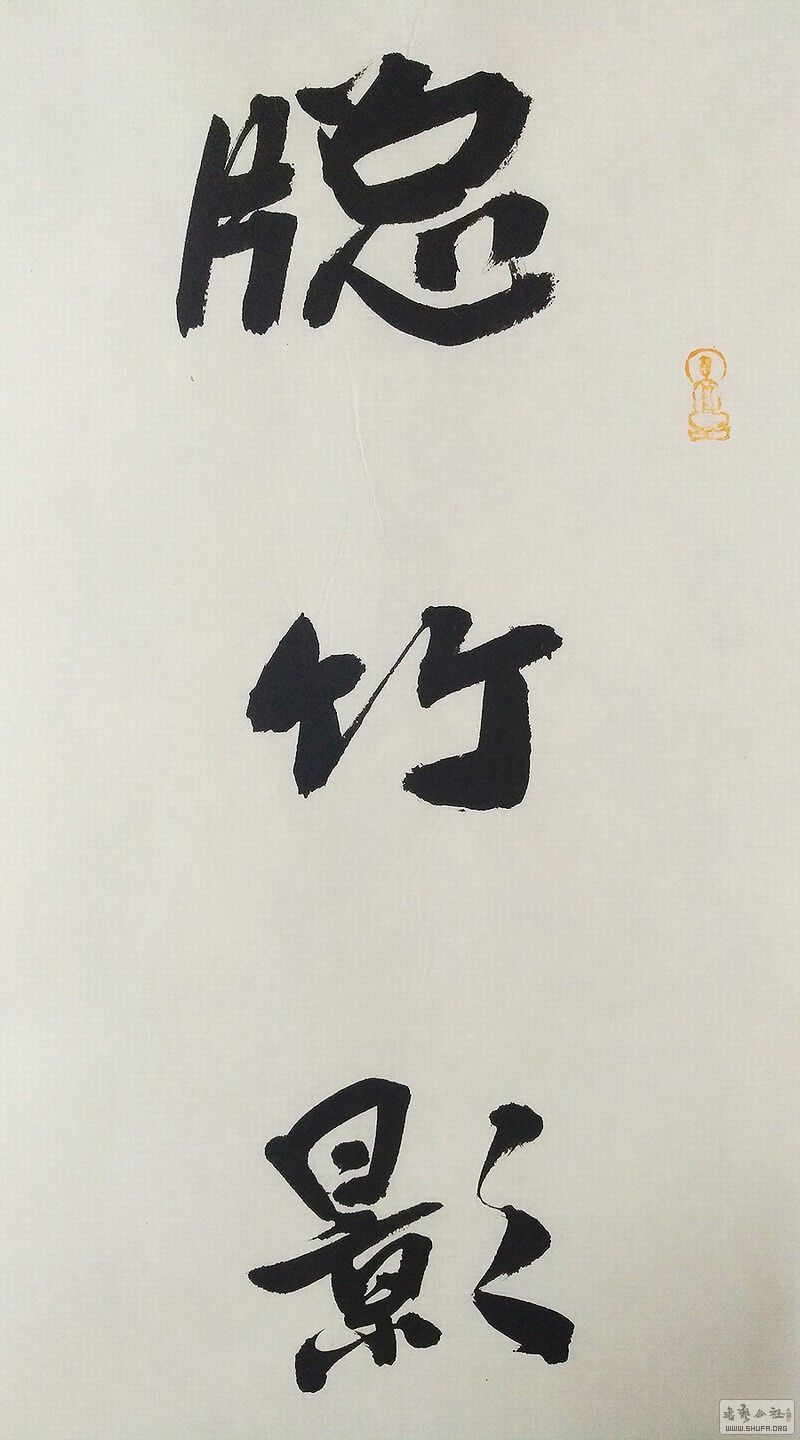 牕竹影
書藝公社
WWW.SHUFA.ORG